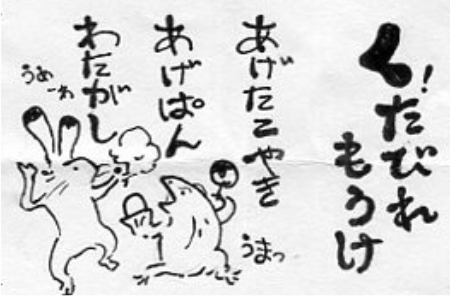 く！たびれ
もうけ
あげたこやき
あげぱん
わたがし
うめーわ
うまっ